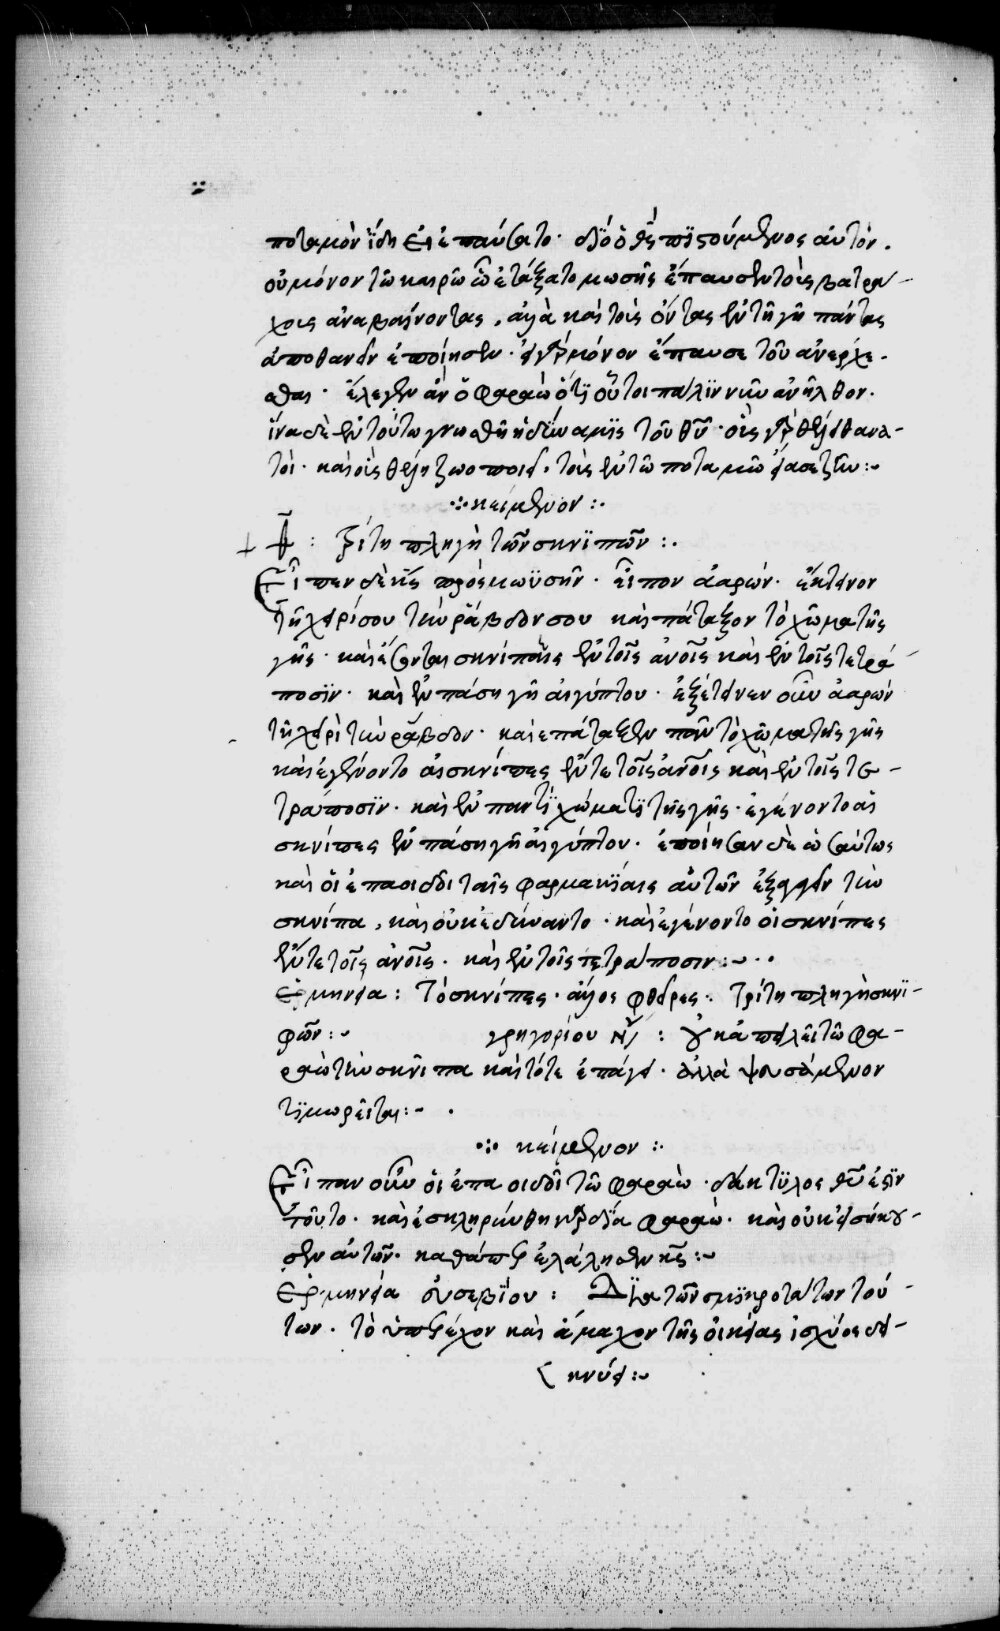 ποταμὸν ἴδη ἐπαύσατο· διὸ ὁ θς πιστούμενος αὐτὸν.
οὐ μόνον τῶ καιρῶ ὧ ἐτάξατο μωσῆς ἔπαυσεν τοὺς βατρά-
χους ἀναβαίνοντας, ἀλλὰ καὶ τοὺς ὄντας ἐν τῆ γῆ πάντας
ἀποθανεῖν ἐποίησεν· εἰ γὰρ μόνον ἔπαυσε τοῦ ἀνέρχε-
σθαι· ἔλεγεν ἂν ὁ φαραὼ ὅτι οὗτοι πάλιν νῦν ἀνῆλθον·
ἵνα δὲ ἐν τούτω γνωσθῆ ἡ δύναμις τοῦ θυ· οὓς γὰρ θέλει θανα-
τοῖ· καὶ οὓς θέλει ζωοποιεῖ· τοὺς ἐν τῶ ποταμῶ εἴασε ζῆν:~
·:· κείμενον :·
τρίτη πληγὴ τῶν σκνιπῶν :·
Εἶπεν δὲ κς πρὸς μωϋσῆν· εἶπον ἀαρών· ἔκτεινον
τῆ χειρί σου τὴν ράβδον σου καὶ πάταξον τὸ χῶμα τῆς
γῆς· καὶ ἔσονται σκνῖπες ἐν τοῖς ἀνοις καὶ ἐν τοῖς τετρά-
ποσϊν· καὶ ἐν πάση γῆ αἰγύπτου· ἐξέτεινεν οὖν ἀαρών
τῆ χειρὶ τὴν ράβδον· καὶ ἐπάταξεν πᾶν τὸ χῶμα τῆς γῆς
καὶ ἐγένοντο οἱ σκνίπες ἔν τε τοῖς ἀνοις καὶ ἐν τοῖς τε-
τράποσϊν· καὶ ἐν παντὶ χώματϊ τῆς γῆς· ἐγένοντο οἱ
σκνίπες ἐν πάση γῆ αἰγύπτου· ἐποίησαν δὲ ὡσαύτως
καὶ οἱ ἐπαοιδοὶ ταῖς φαρμακΐαις αὐτῶν ἐξαγαγεῖν τὸν
σκνίπα, καὶ οὐκ ἐδύναντο· καὶ ἐγένοντο οἱ σκνίπες
ἔν τε τοῖς ἀνοις· καὶ ἐν τοῖς τετράποσιν:~··
ἑρμηνεία: Τὸ σκνίπες· ἄλλος φθεῖρες· τρίτη πληγὴ σκνϊ-
φῶν:~ γρηγορίου νύ : Οὐκ ἀπειλεῖ τῶ φα-
ραὼ τὴν σκνῖπα καὶ τότε ἐπάγει· ἀλλὰ ψευσάμενον
τϊμωρεῖται:~ ·
·:· κείμενον :·
Εἶπαν οὖν οἱ ἐπαοιδοὶ τῶ φαραὼ· δάκτϋλος θυ ἐστϊν
τοῦτο· καὶ ἐσκληρύνθη ἡ καρδΐα φαραὼ· καὶ οὐκ εἰσήκου-
σεν αὐτῶν· καθάπερ ἐλάλησεν κς:~
ἑρμηνεία εὐσεβΐου : Δϊὰ τῶν σμϊκροτάτων τού-
των· τὸ ὑπερέχον καὶ ἄμαχον τῆς οἰκείας ἰσχύος δει-
κνύει:~